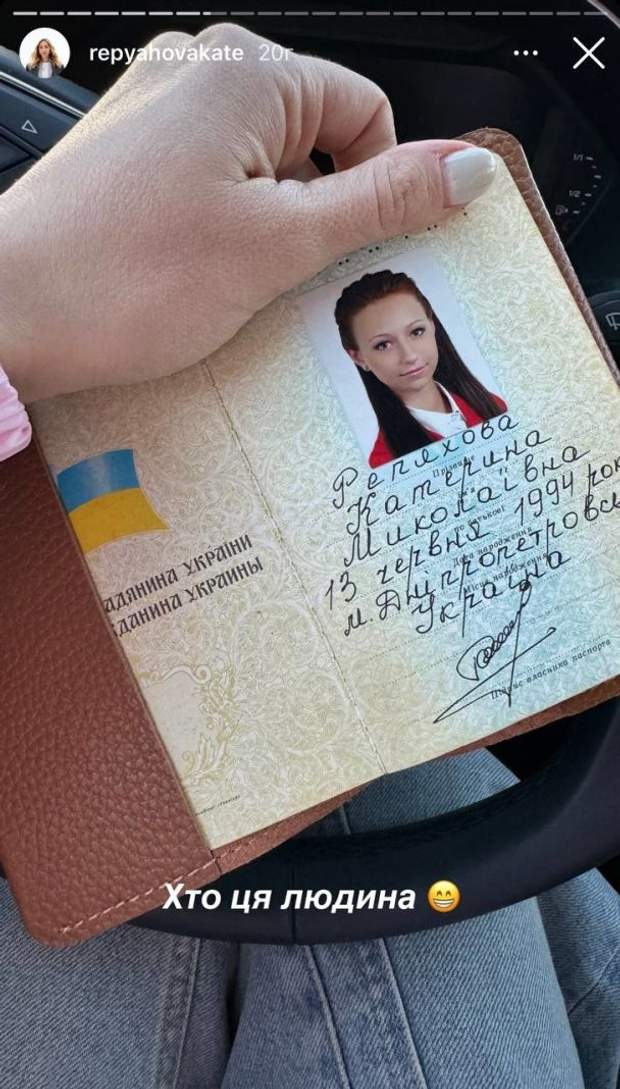 repyahovakate 20г
Репяхова
Прізвище
Катерина
Миколаївна
по батькові
13 червня 1994 рок
Дата народження
м. Дніпропетровсь
Місце народження
Україна
Підпис власника паспорта
АДЯНИНА УКРАЇНИ
ЖДАНИНА УКРАИНЫ
Хто ця людина 😁